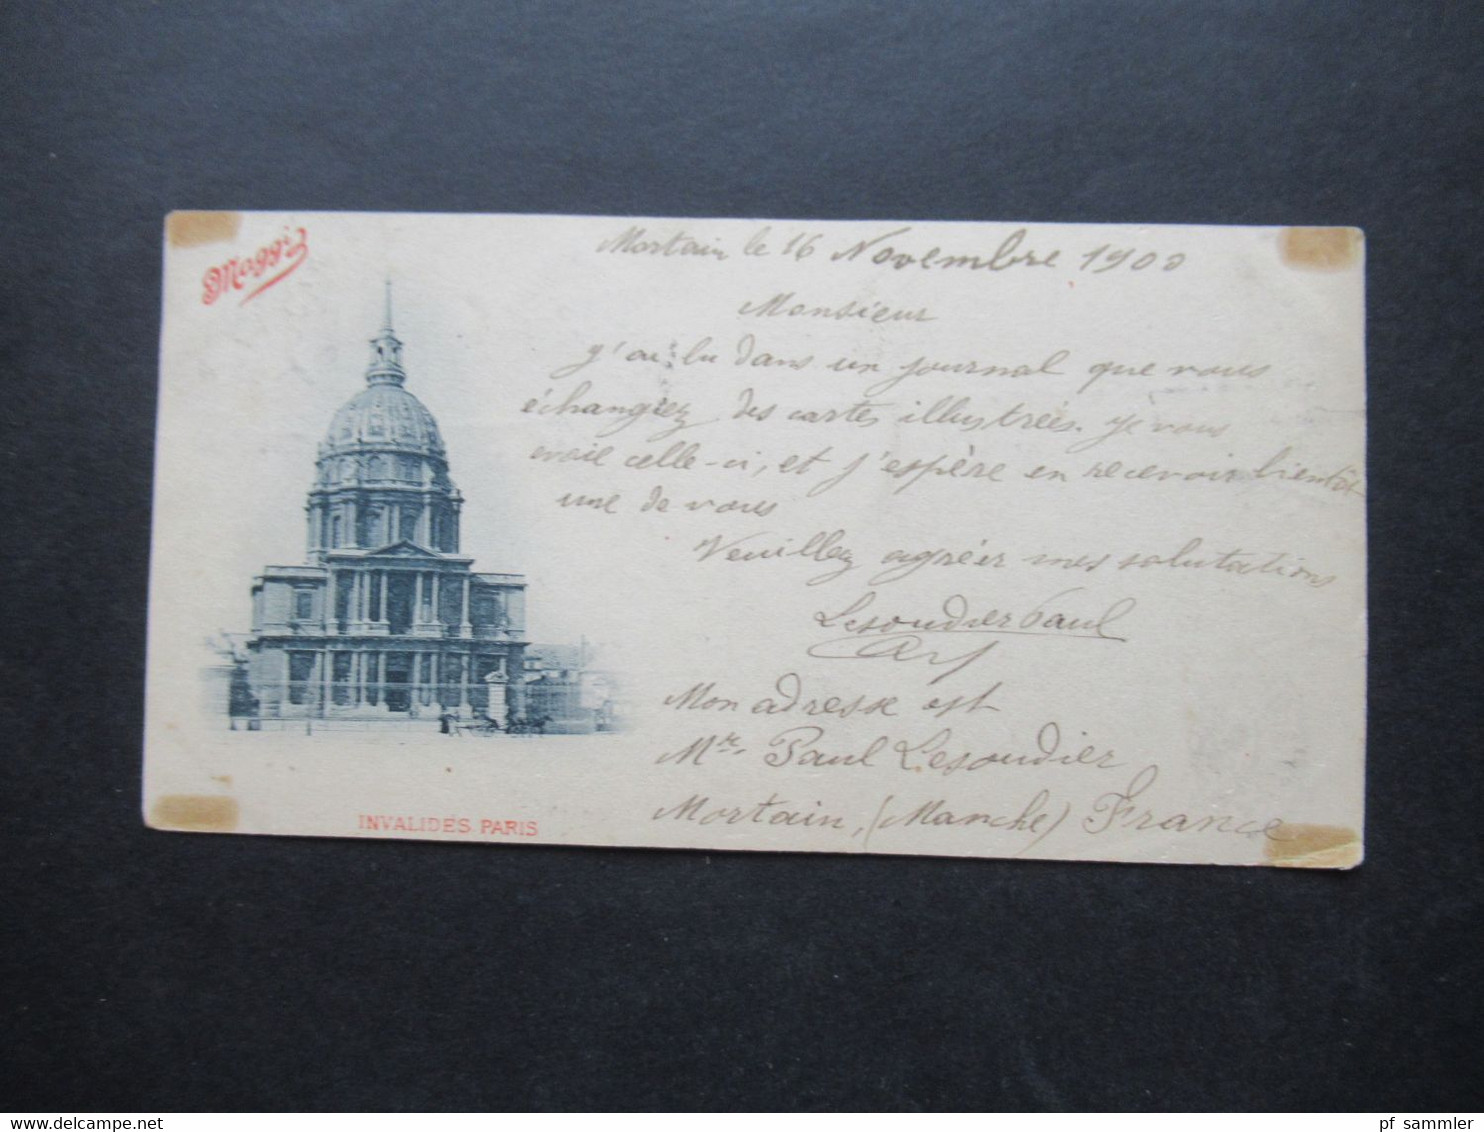 Maggi
Mortain le 16 Novembre 1900
Monsieur
J'ai lu dans un journal que vous
échangiez des cartes illustrées. Je vous
evoie celle-ci, et j'espère en recevoir bientôt
une de vous
Veuillez agréer mes salutations
Lesoudier Paul
Mon adresse est
Mr. Paul Lesoudier
Mortain, (Manche) France
INVALIDES PARIS
www.delcampe.net
pf_sammler